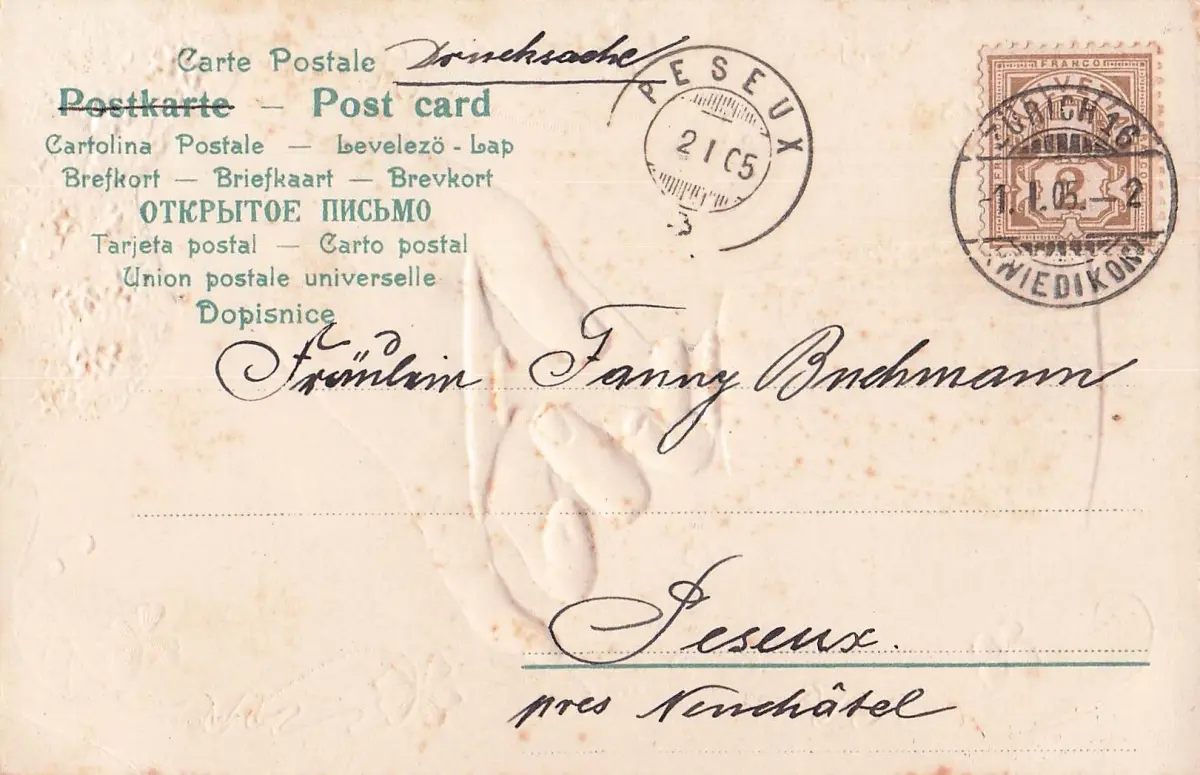 Carte Postale Drucksache
Postkarte — Post card
Cartolina Postale — Levelező - Lap
Brefkort — Briefkaart — Brevkort
ОТКРЫТОЕ ПИСЬМО
Tarjeta postal — Carto postal
Union postale universelle
Dopisnice
PESEUX
2 I 05
-3
FRANCO
ZÜRICH 16
1. I. 05. - 2
(WIEDIKON)
2
Fräulein Fanny Buchmann
Peseux.
près Neuchâtel